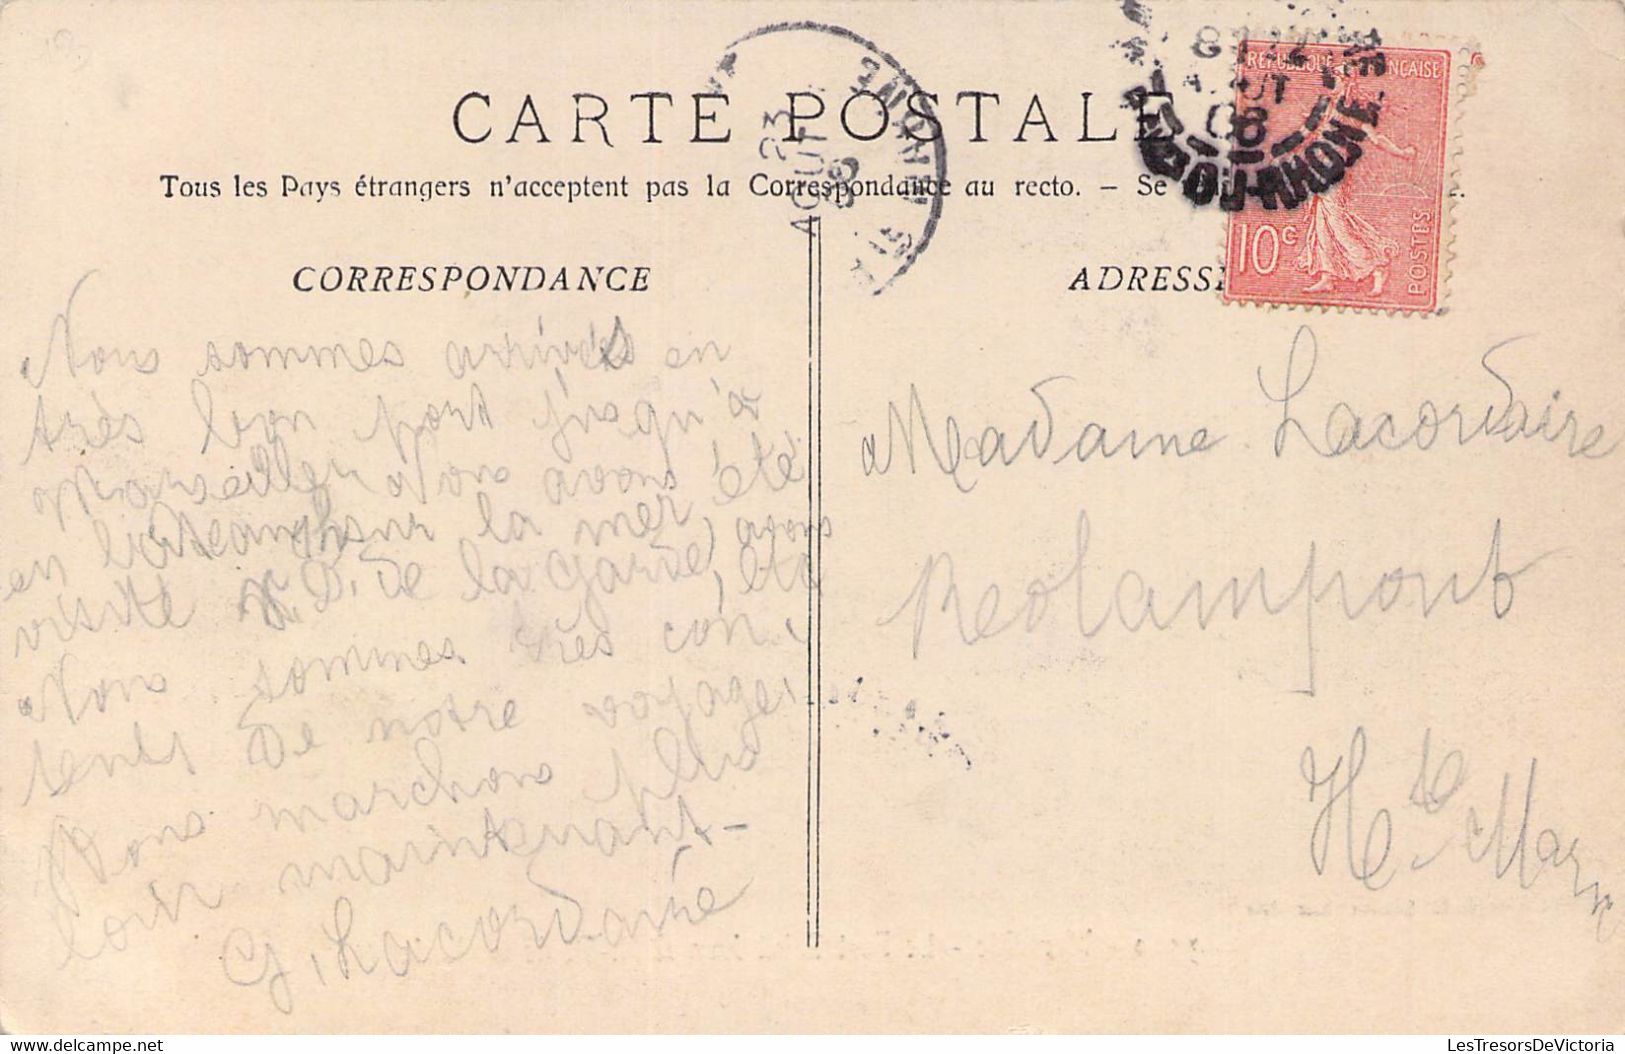 CARTE POSTALE
Tous les Pays étrangers n'acceptent pas la Correspondance au recto. - Se
CORRESPONDANCE
Nous sommes arrivés en
très bon port jusqu'à
Marseille Nous avons été
en bateau sur la mer, avons
visité N. D. de la Garde, etc
Nous sommes très con-
tents de notre voyage,
Nous marchons plus
loin maintenant -
G. Lacordaire
ADRESSE
Madame Lacordaire
Rolampont
Hte Marne
REPUBLIQUE FRANÇAISE
10c
POSTES
23
AOUT
06
AOUT
06
BCHES-DU-RHONE
LesTresorsDeVictoria